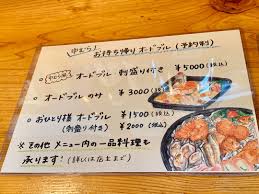 お持ち帰りオードブル(予約制)
○ オードブル 刺盛り付き ￥5000(税込)
○ オードブル のみ ￥3000(税込)
○ おひとり様 オードブル ￥1500(税込)
(刺盛り付き) ￥2000(税込)
※ その他 メニュー内の一品料理も
承ります!(詳しくは店主まで)